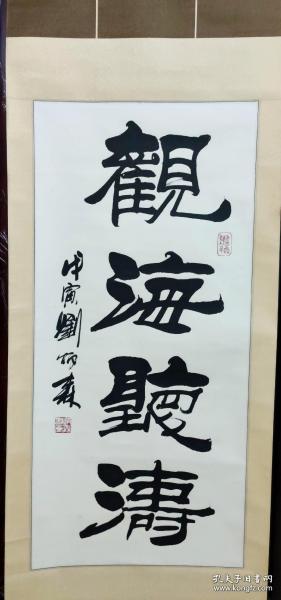 觀海聽濤
甲寅劉炳森
孔夫子旧书网
www.kongfz.com